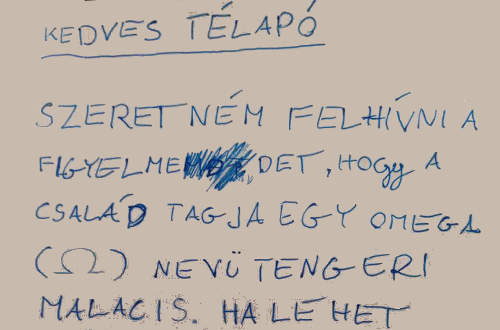 KEDVES TÉLAPÓ
SZERETNÉM FELHÍVNI A
FIGYELME DET, HOGY A
CSALÁD TAGJA EGY OMEGA
(Ω) NEVÜ TENGERI
MALAC IS. HA LEHET